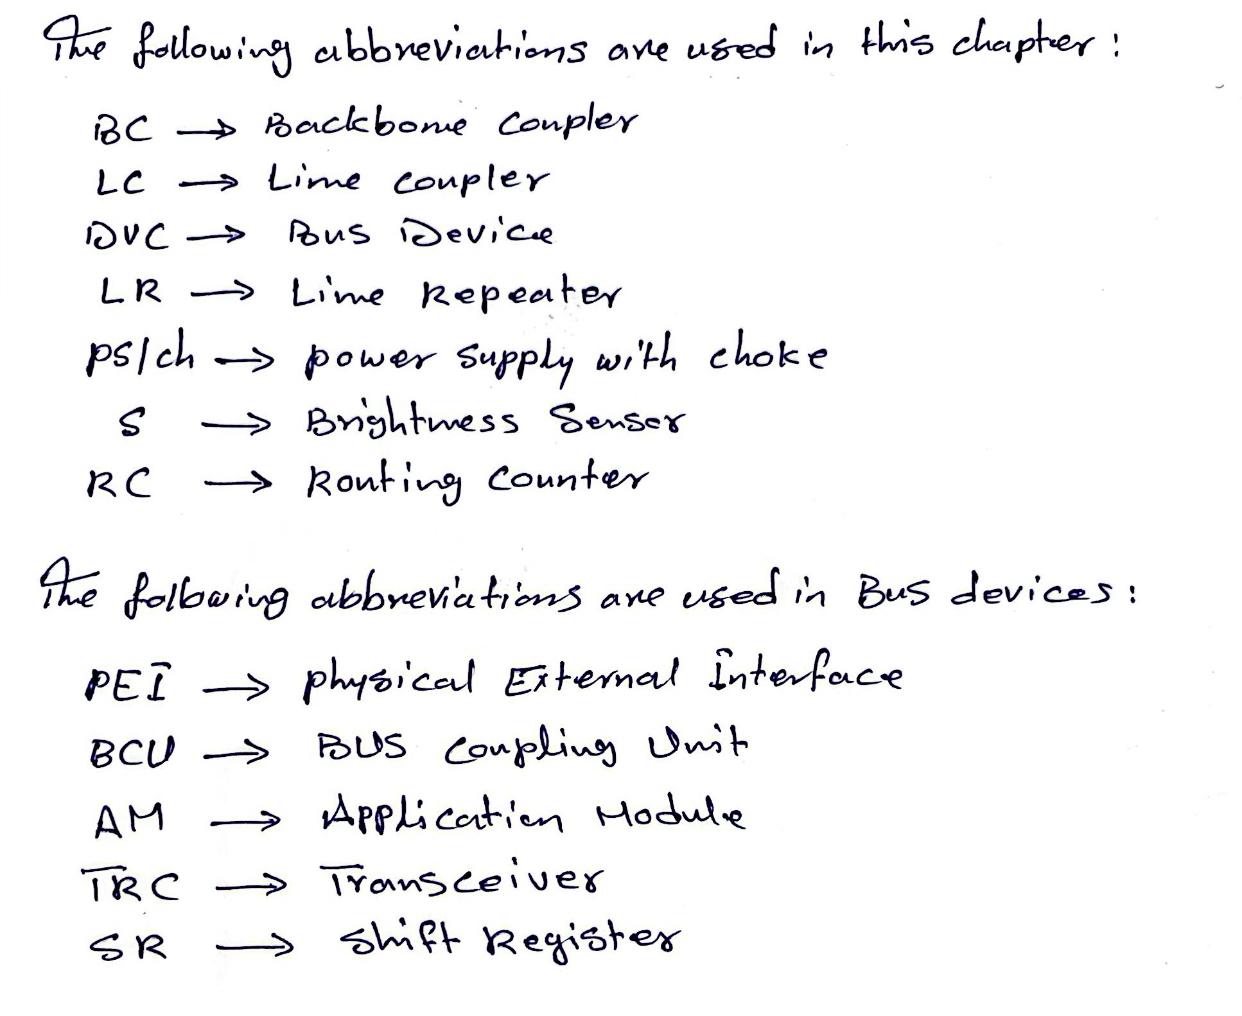 The following abbreviations are used in this chapter :
BC → Backbone Coupler
LC → Line coupler
DVC → Bus Device
LR → Line Repeater
PS/ch → power supply with choke
S → Brightness Sensor
RC → Routing Counter
The following abbreviations are used in Bus devices :
PEI → physical External Interface
BCU → BUS Coupling Unit
AM → Application Module
TRC → Transceiver
SR → Shift Register